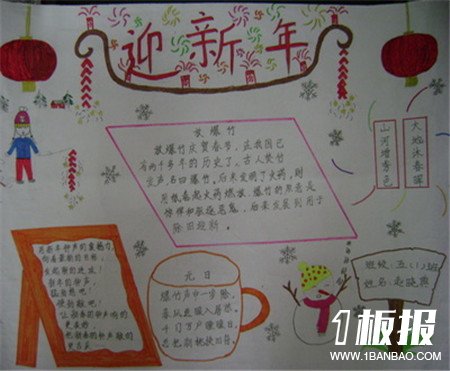 迎新年
放爆竹
放爆竹庆贺春节,在我国已
有两千多年的历史了。古人焚竹
发声,名曰爆竹,后来发明了火药,则
用纸卷起火药燃放。爆竹的原意是
惊惮和驱逐恶鬼,后来发展到用于
除旧迎新。
大地沐春晖
山河增秀色
向着最新的目标,
新年的钟声,
元日
爆竹声中一岁除,
春风送暖入屠苏。
千门万户曈曈日,
总把新桃换旧符。
班级:五(1)班
姓名:赵晓
1板报
WWW.1BANBAO.COM